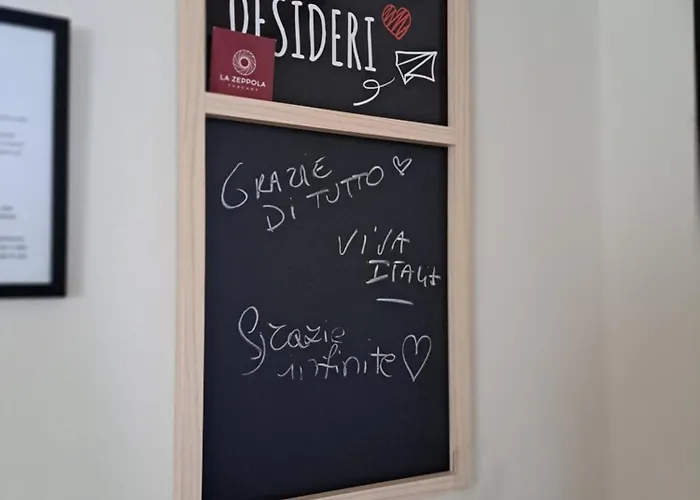 DESIDERI
LA ZEPPOLA
TUSCANY
GRAZIE
DI TUTTO
VIVA
ITALIA
Grazie
infinite